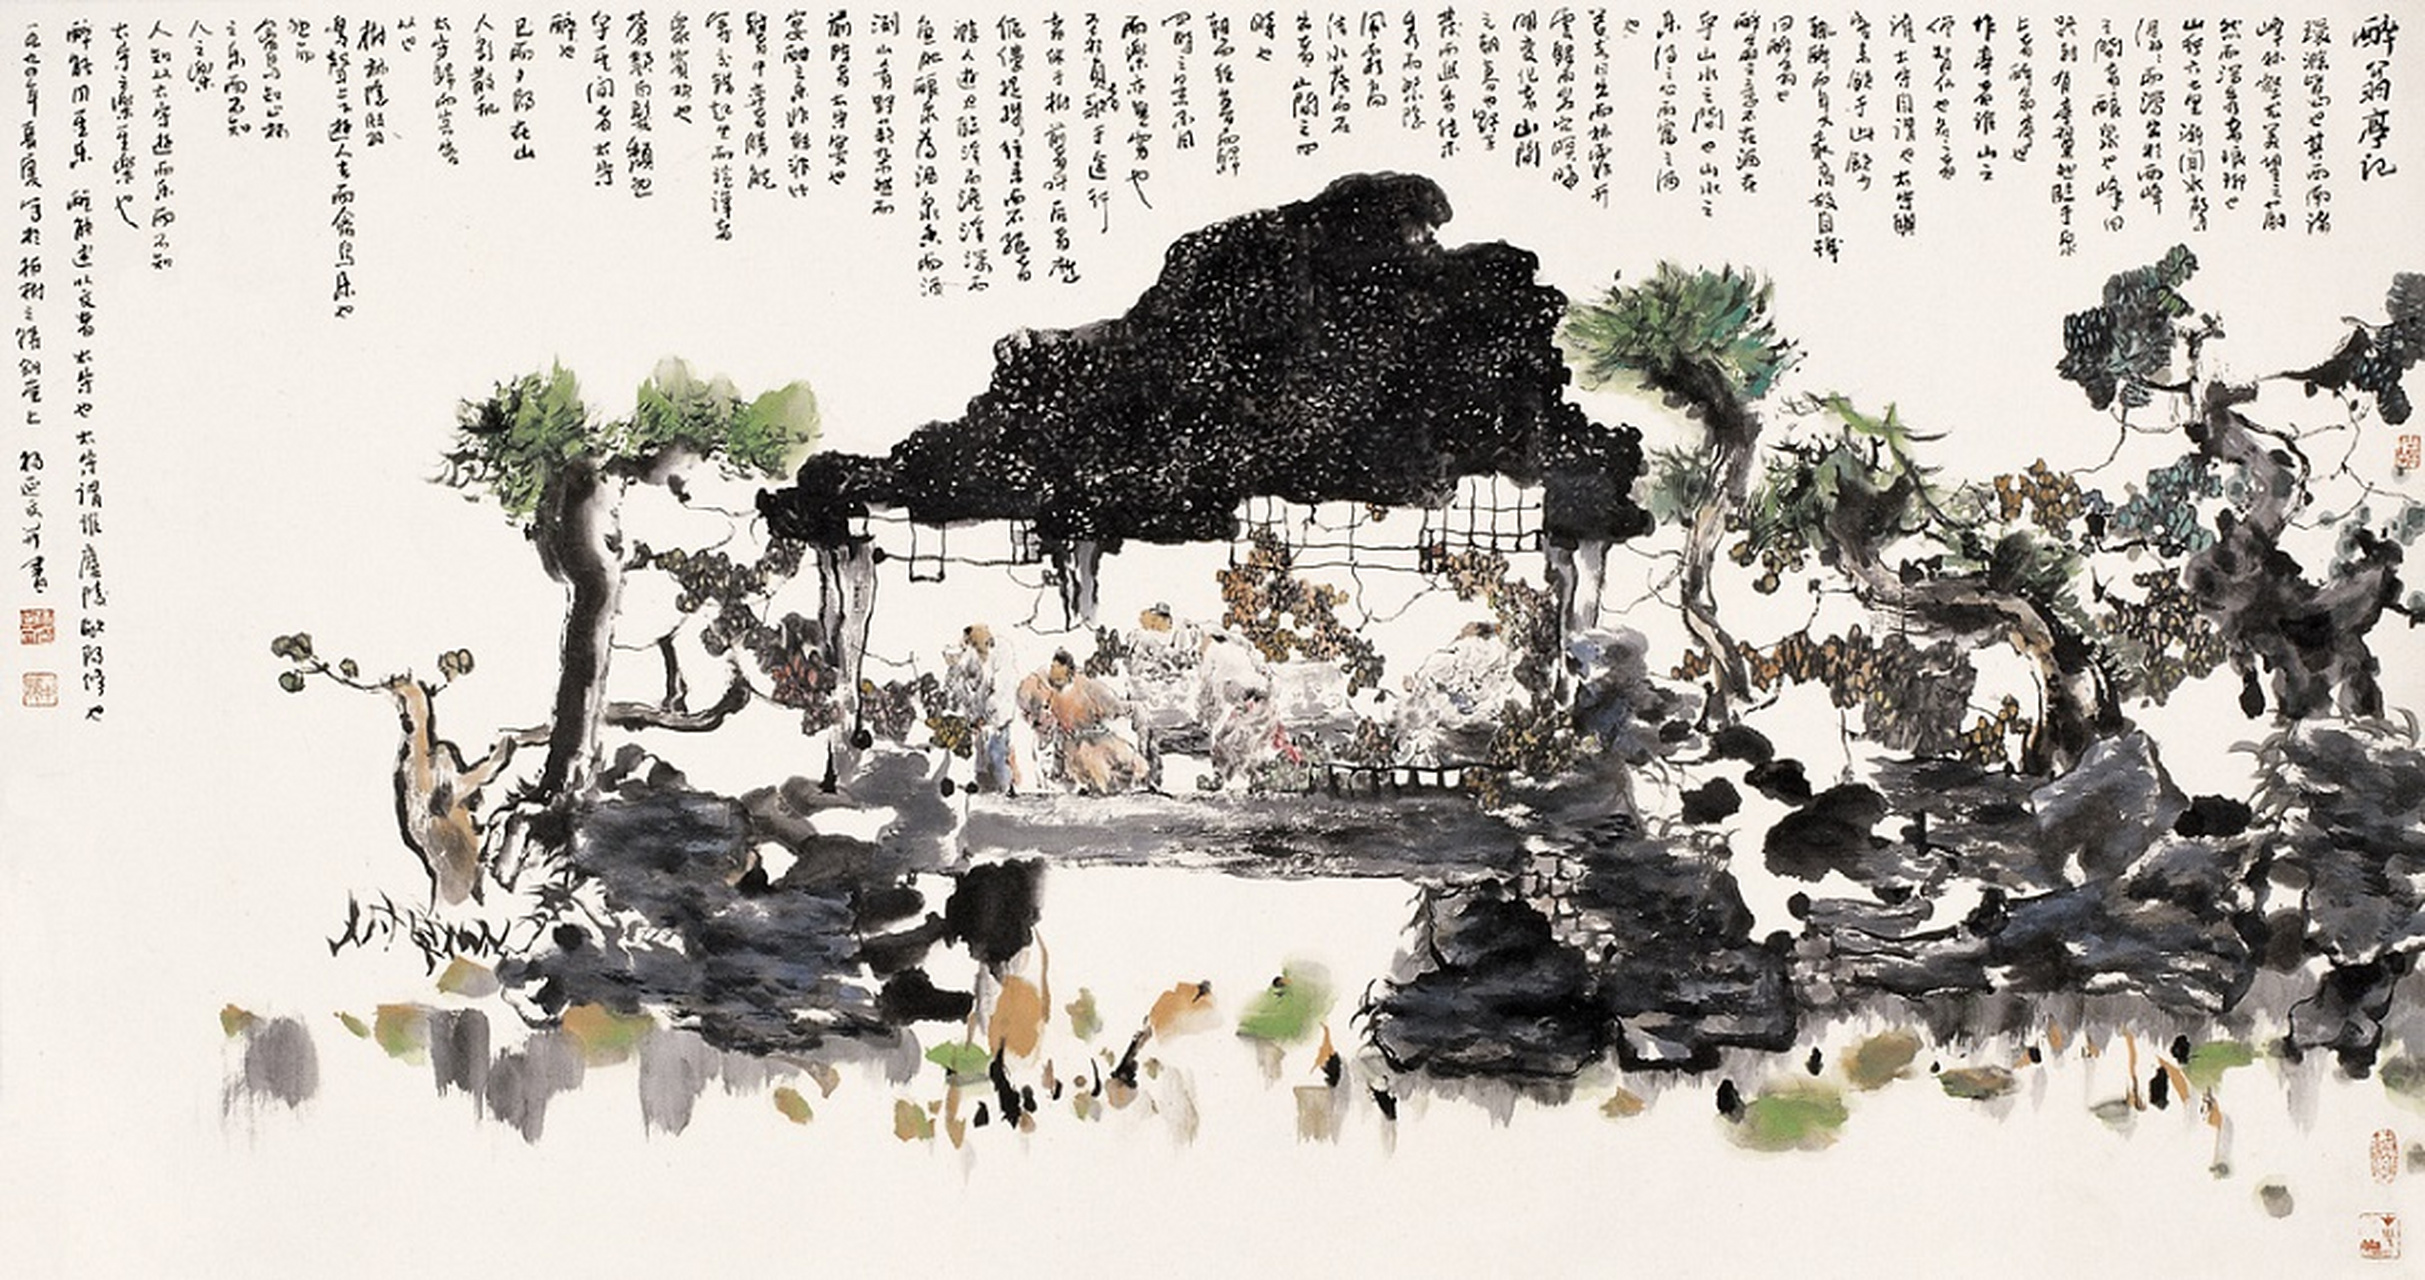 醉翁亭记
環滁皆山也其西南诸
峰林壑尤美望之蔚
然而深秀者琅琊也
山行六七里渐闻水聲
潺潺而瀉出於兩峰
之間者釀泉也峰回
路轉有亭翼然臨于泉
上者醉翁亭也
作亭者谁山之
僧智仙也名之者
谁太守自谓也太守與
客来飲于此飲少
輒醉而年又最高故自號
曰醉翁也
醉翁之意不在酒在
乎山水之間也山水之
乐得之心而寓之酒
也
若夫日出而林霏开
雲歸而岩穴暝晦
明变化者山間
之朝暮也野芳
發而幽香佳木
秀而繁陰
風霜高
洁水落而石
出者山間之四
時也
朝而往暮而歸
四時之景不同
而樂亦無窮也
至於負者歌于途行
者休于樹前者呼后者應
伛偻提携往来而不絕者
滁人遊也臨溪而漁溪深而
魚肥釀泉為酒泉香而酒
洌山肴野蔌杂然而
前陈者太守宴也
宴酣之乐非丝非竹
射者中弈者勝觥
筹交錯起坐而諠譁者
眾賓欢也
蒼顏白髮頹然
乎其間者太守
醉也
已而夕陽在山
人影散乱
太守歸而賓客
从也
樹林陰翳
鳴聲上下遊人去而禽鸟乐也
然而
禽鸟知山林
之乐而不知
人之樂
人知从太守遊而乐而不知
太守之樂其樂也
醉能同其乐 醒能述以文者太守也太守谓谁廬陵欧阳修也
一九九〇年夏 写於柏樹之 堂上 杨延文并書